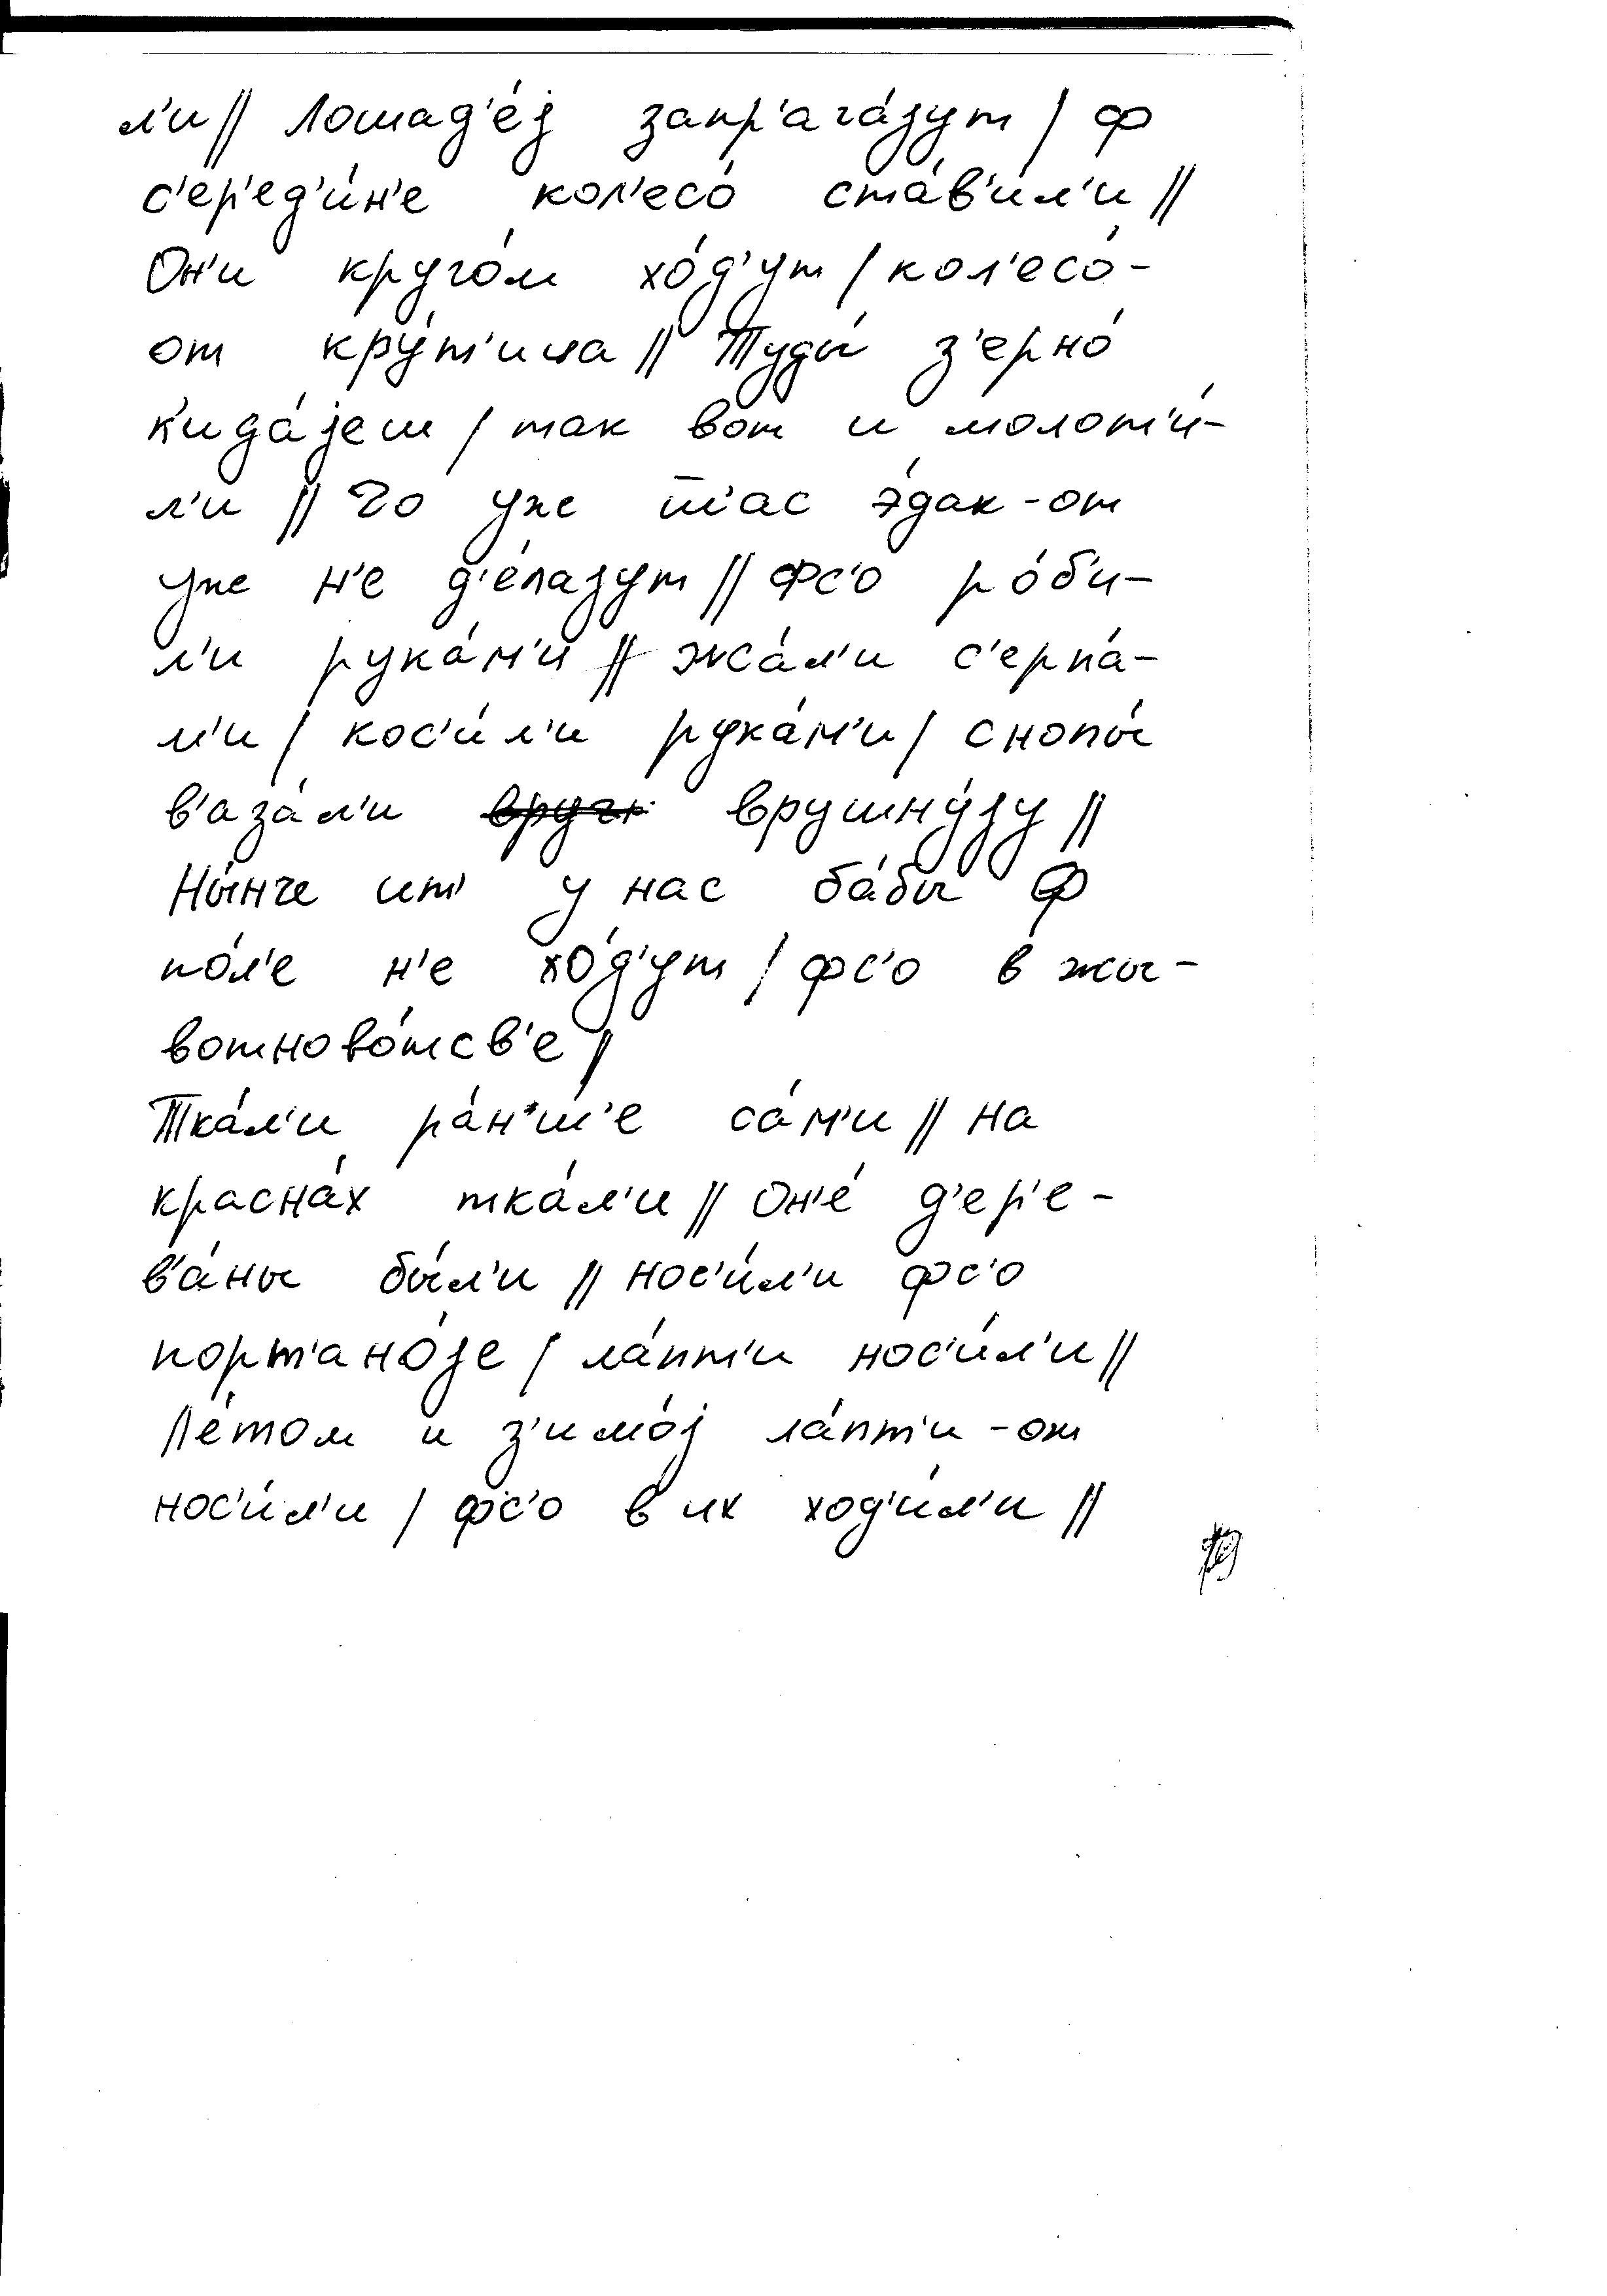 л'и // Лошад'е́j запр'ага́jут / ф
с'ер'ед'и́н'е кол'есо́ ста́в'ил'и //
Он'и круго́м хо́д'ут / кол'есо́-
от кру́т'ила // Туды́ з'ерно́
к'ида́jеш / так вот и молот'и́-
л'и // Чо уже ш'ас э́дак-от
уже н'е д'е́лаjут // Фс'о ро́б'и-
л'и рука́м'и // жа́л'и с'ерпа́-
м'и / кос'и́л'и рука́м'и / снопы́
в'аза́л'и врушну́jу //
Ны́нче ит' у нас ба́бы ф
по́л'е н'е хо́д'ут / фс'о в жы-
вотново́тсв'е //
Тка́л'и ра́н'ш'е са́м'и // на
кросна́х тка́л'и // Он'е́ д'ер'е-
в'а́ны бы́л'и // нос'и́л'и фс'о
порт'ано́jе / ла́пт'и нос'и́л'и //
Л'е́том и з'имо́j ла́пт'и-от
нос'и́л'и / фс'о в их ход'и́л'и //